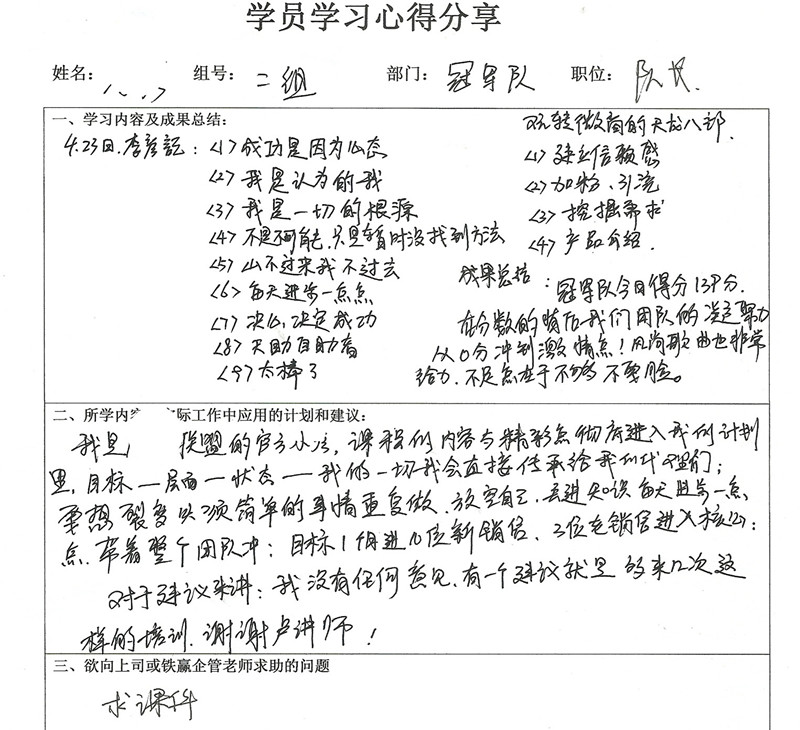 学员学习心得分享
姓名: 组号: 二组 部门: 冠军队 职位: 队长.
一、学习内容及成果总结:
4.23日.李彦記: <1>成功是因为心态
<2>我是认为的我
<3>我是一切的根源
<4>不是不可能.只是暂时没找到方法
<5>山不过来我不过去
<6>每天进步一点点
<7>决心.决定成功
<8>天助自助者
<9>太棒了
玩转微商的天龙八部.
<1>建立信赖感
<2>加粉、引流
<3>挖掘需求
<4>产品介绍.
成果总结: 冠军队今日得分139分.
在分数的背后我们团队的凝聚力
从0分冲到激情点!风尚歌曲也非常
给力.不足点在于不够不要脸。
二、所学内 际工作中应用的计划和建议:
我是 联盟的官方小 ,课程的内容与精彩点彻底进入我们计划
里,目标一层面一状态一我的一切我会直接传承给我们代理们;
要想裂变必须简单的事情重复做.放空自己. 进知识每天进步一点
点.带着整个团队冲:目标1个月进 位新销售.2位老销售进入核心;
对于建议来讲:我没有任何意见.有一个建议就是多来几次这
样的培训.谢谢卢讲师!
三、欲向上司或铁赢企管老师求助的问题
求课件